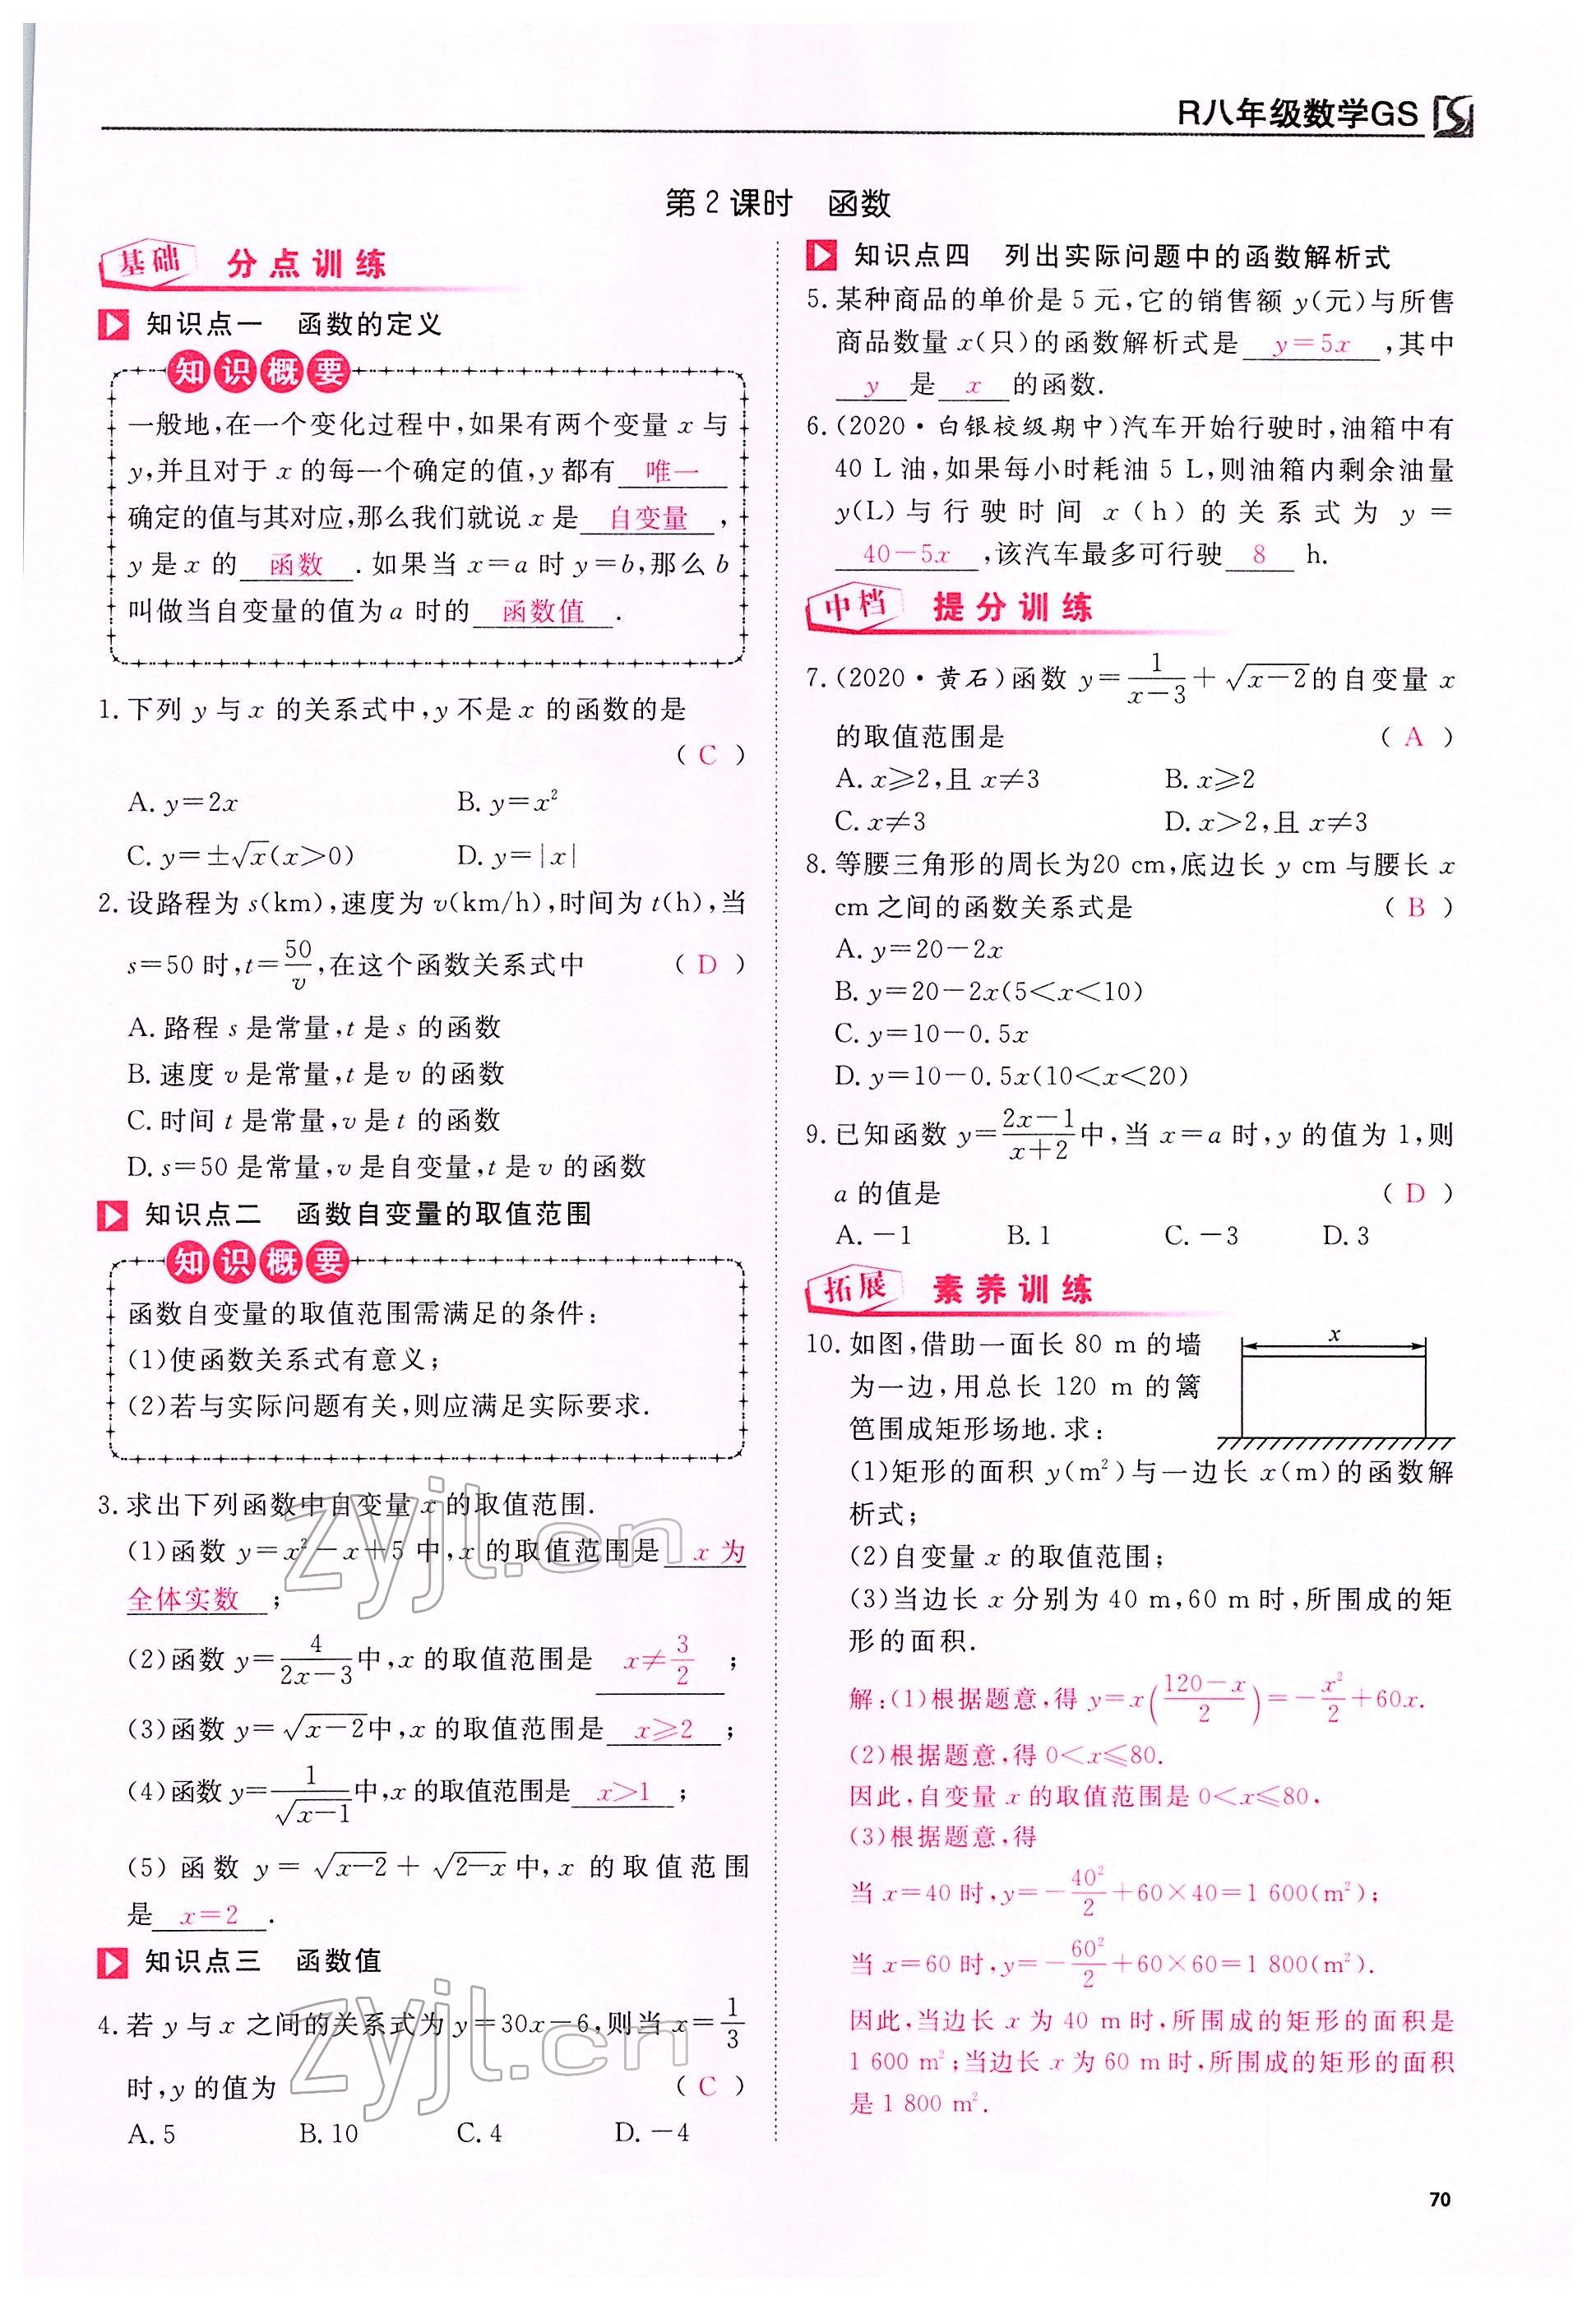 R八年级数学GS
第2课时 函数
基础 分点训练
知识点一 函数的定义
知识概要
一般地,在一个变化过程中,如果有两个变量 x 与
y,并且对于 x 的每一个确定的值,y 都有 唯一
确定的值与其对应,那么我们就说 x 是 自变量 ,
y 是 x 的 函数 .如果当 x=a 时 y=b,那么 b
叫做当自变量的值为 a 时的 函数值 .
1.下列 y 与 x 的关系式中,y 不是 x 的函数的是
( C )
A. y=2x B. y=x²
C. y=±√x(x>0) D. y=|x|
2.设路程为 s(km),速度为 v(km/h),时间为 t(h),当
s=50 时,t=50/v,在这个函数关系式中 ( D )
A.路程 s 是常量,t 是 s 的函数
B.速度 v 是常量,t 是 v 的函数
C.时间 t 是常量,v 是 t 的函数
D. s=50 是常量,v 是自变量,t 是 v 的函数
知识点二 函数自变量的取值范围
知识概要
函数自变量的取值范围需满足的条件:
(1)使函数关系式有意义;
(2)若与实际问题有关,则应满足实际要求.
3.求出下列函数中自变量 x 的取值范围.
(1)函数 y=x²-x+5 中,x 的取值范围是 x 为
全体实数 ;
(2)函数 y=4/(2x-3)中,x 的取值范围是 x≠3/2 ;
(3)函数 y=√(x-2)中,x 的取值范围是 x≥2 ;
(4)函数 y=1/√(x-1)中,x 的取值范围是 x>1 ;
(5)函数 y=√(x-2)+√(2-x)中,x 的取值范围
是 x=2 .
知识点三 函数值
4.若 y 与 x 之间的关系式为 y=30x-6,则当 x=1/3
时,y 的值为 ( C )
A. 5 B. 10 C. 4 D. -4
知识点四 列出实际问题中的函数解析式
5.某种商品的单价是 5 元,它的销售额 y(元)与所售
商品数量 x(只)的函数解析式是 y=5x ,其中
y 是 x 的函数.
6.(2020·白银校级期中)汽车开始行驶时,油箱中有
40 L 油,如果每小时耗油 5 L,则油箱内剩余油量
y(L)与行驶时间 x(h)的关系式为 y=
40-5x ,该汽车最多可行驶 8 h.
中档 提分训练
7.(2020·黄石)函数 y=1/(x-3)+√(x-2)的自变量 x
的取值范围是 ( A )
A. x≥2,且 x≠3 B. x≥2
C. x≠3 D. x>2,且 x≠3
8.等腰三角形的周长为20 cm,底边长 y cm 与腰长 x
cm 之间的函数关系式是 ( B )
A. y=20-2x
B. y=20-2x(5<x<10)
C. y=10-0.5x
D. y=10-0.5x(10<x<20)
9.已知函数 y=(2x-1)/(x+2)中,当 x=a 时,y 的值为 1,则
a 的值是 ( D )
A. -1 B. 1 C. -3 D. 3
拓展 素养训练
10.如图,借助一面长 80 m 的墙
为一边,用总长 120 m 的篱
笆围成矩形场地.求:
x
(1)矩形的面积 y(m²)与一边长 x(m)的函数解
析式;
(2)自变量 x 的取值范围;
(3)当边长 x 分别为 40 m,60 m 时,所围成的矩
形的面积.
解:(1)根据题意,得 y=x((120-x)/2)=-x²/2+60x.
(2)根据题意,得 0<x≤80.
因此,自变量 x 的取值范围是 0<x≤80.
(3)根据题意,得
当 x=40 时,y=-40²/2+60×40=1 600(m²);
当 x=60 时,y=-60²/2+60×60=1 800(m²).
因此,当边长 x 为 40 m 时,所围成的矩形的面积是
1 600 m²;当边长 x 为 60 m 时,所围成的矩形的面积
是 1 800 m².
zyjl.cn
zyjl.cn
70